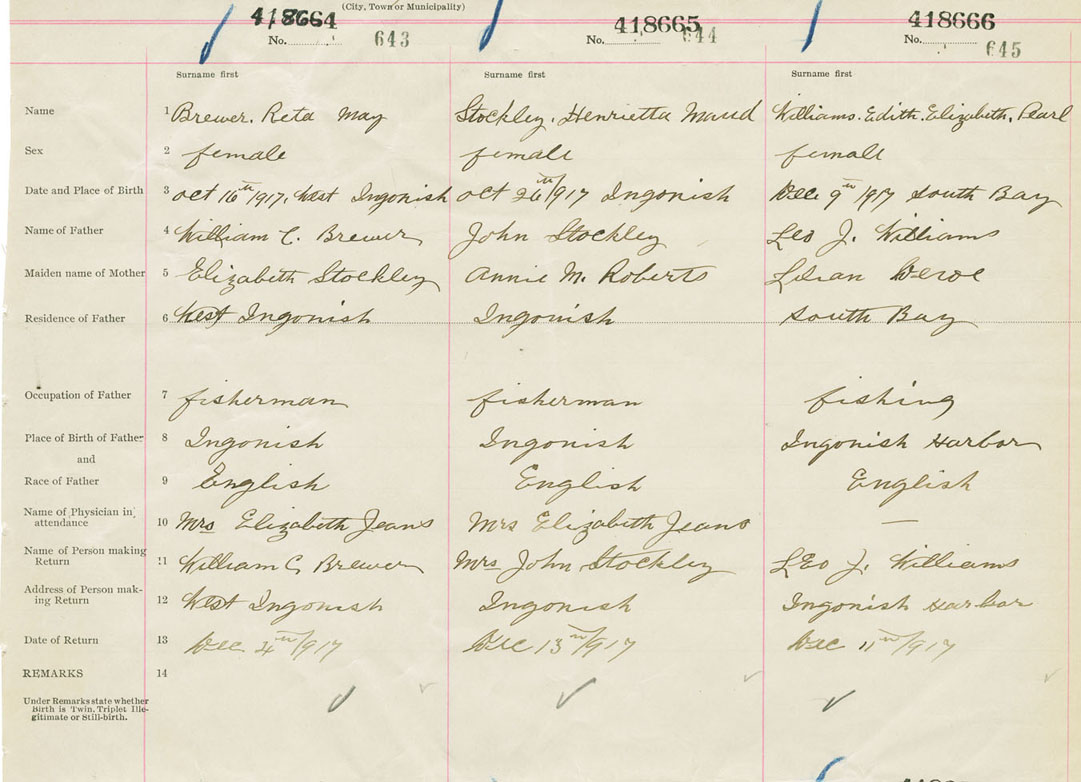 (City, Town or Municipality)
418664 418665 418666
No. 643 No. 644 No. 645
Surname first Surname first Surname first
Name 1 Brewer, Reta May Stockley, Henrietta Maud Williams. Edith. Elizabeth. Pearl
Sex 2 female female female
Date and Place of Birth 3 oct 16th/1917, West Ingonish oct 26th/1917 Ingonish Dec 9th 1917 South Bay
Name of Father 4 William C. Brewer John Stockley Leo J. Williams
Maiden name of Mother 5 Elizabeth Stockley Annie M. Roberts Lilian
Residence of Father 6 West Ingonish Ingonish South Bay
Occupation of Father 7 fisherman fisherman fishing
Place of Birth of Father 8 Ingonish Ingonish Ingonish Harbor
and
Race of Father 9 English English English
Name of Physician in attendance 10 Mrs Elizabeth Jeans Mrs Elizabeth Jeans —
Name of Person making Return 11 William C. Brewer Mrs John Stockley Leo J. Williams
Address of Person making Return 12 West Ingonish Ingonish Ingonish Harbor
Date of Return 13 Dec 4th/1917 Dec 13th/1917 Dec 11th/1917
REMARKS 14
Under Remarks state whether
Birth is Twin, Triplet Ille-
gitimate or Still-birth.